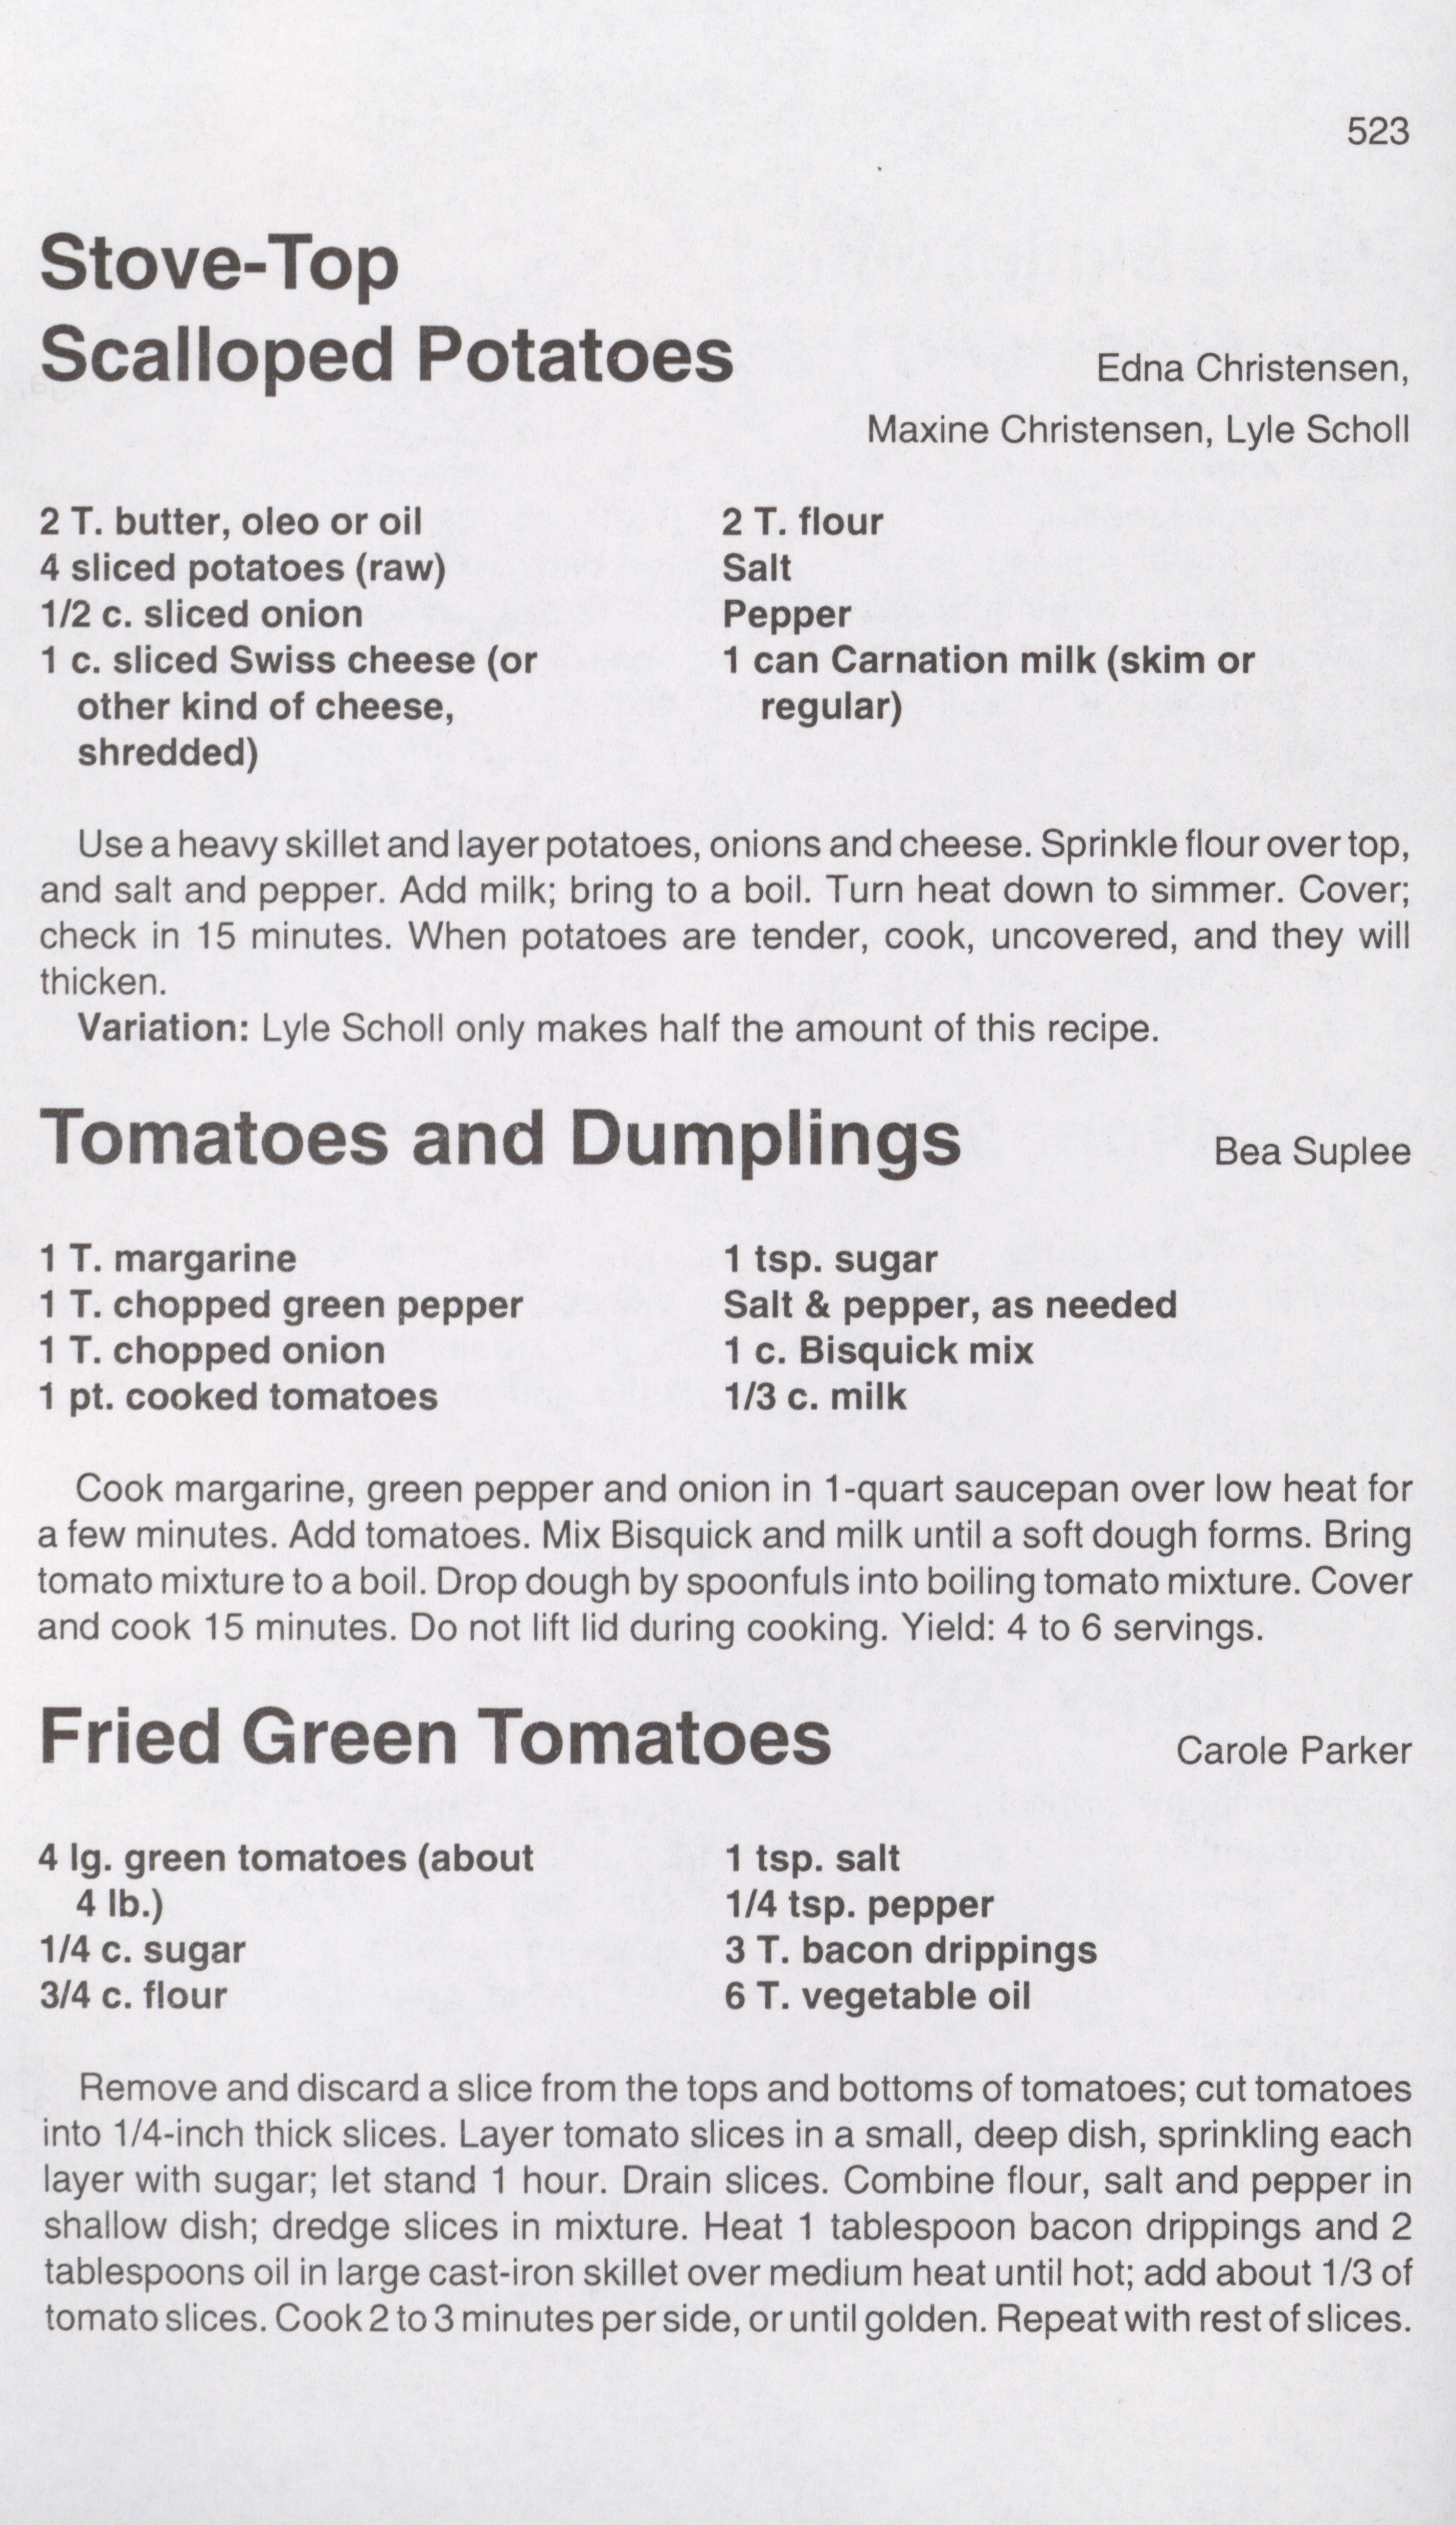 523
Stove-Top
Scalloped Potatoes
Edna Christensen,
Maxine Christensen, Lyle Scholl
2 T. butter, oleo or oil
4 sliced potatoes (raw)
1/2 c. sliced onion
1 c. sliced Swiss cheese (or
other kind of cheese,
shredded)
2 T. flour
Salt
Pepper
1 can Carnation milk (skim or
regular)
Use a heavy skillet and layer potatoes, onions and cheese. Sprinkle flour over top,
and salt and pepper. Add milk; bring to a boil. Turn heat down to simmer. Cover;
check in 15 minutes. When potatoes are tender, cook, uncovered, and they will
thicken.
Variation: Lyle Scholl only makes half the amount of this recipe.
Tomatoes and Dumplings
Bea Suplee
1 T. margarine
1 T. chopped green pepper
1 T. chopped onion
1 pt. cooked tomatoes
1 tsp. sugar
Salt & pepper, as needed
1 c. Bisquick mix
1/3 c. milk
Cook margarine, green pepper and onion in 1-quart saucepan over low heat for
a few minutes. Add tomatoes. Mix Bisquick and milk until a soft dough forms. Bring
tomato mixture to a boil. Drop dough by spoonfuls into boiling tomato mixture. Cover
and cook 15 minutes. Do not lift lid during cooking. Yield: 4 to 6 servings.
Fried Green Tomatoes
Carole Parker
4 lg. green tomatoes (about
4 lb.)
1/4 c. sugar
3/4 c. flour
1 tsp. salt
1/4 tsp. pepper
3 T. bacon drippings
6 T. vegetable oil
Remove and discard a slice from the tops and bottoms of tomatoes; cut tomatoes
into 1/4-inch thick slices. Layer tomato slices in a small, deep dish, sprinkling each
layer with sugar; let stand 1 hour. Drain slices. Combine flour, salt and pepper in
shallow dish; dredge slices in mixture. Heat 1 tablespoon bacon drippings and 2
tablespoons oil in large cast-iron skillet over medium heat until hot; add about 1/3 of
tomato slices. Cook 2 to 3 minutes per side, or until golden. Repeat with rest of slices.